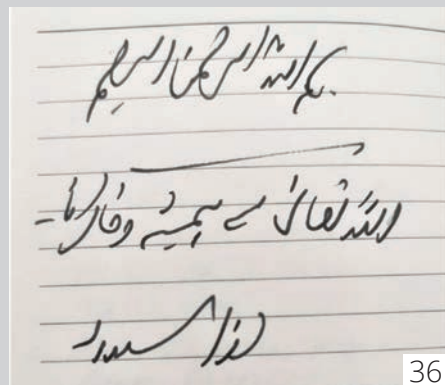 بسم اللہ الرحمن الرحیم
اللہ تعالیٰ سے ہمیشہ وفا کرنا۔
36